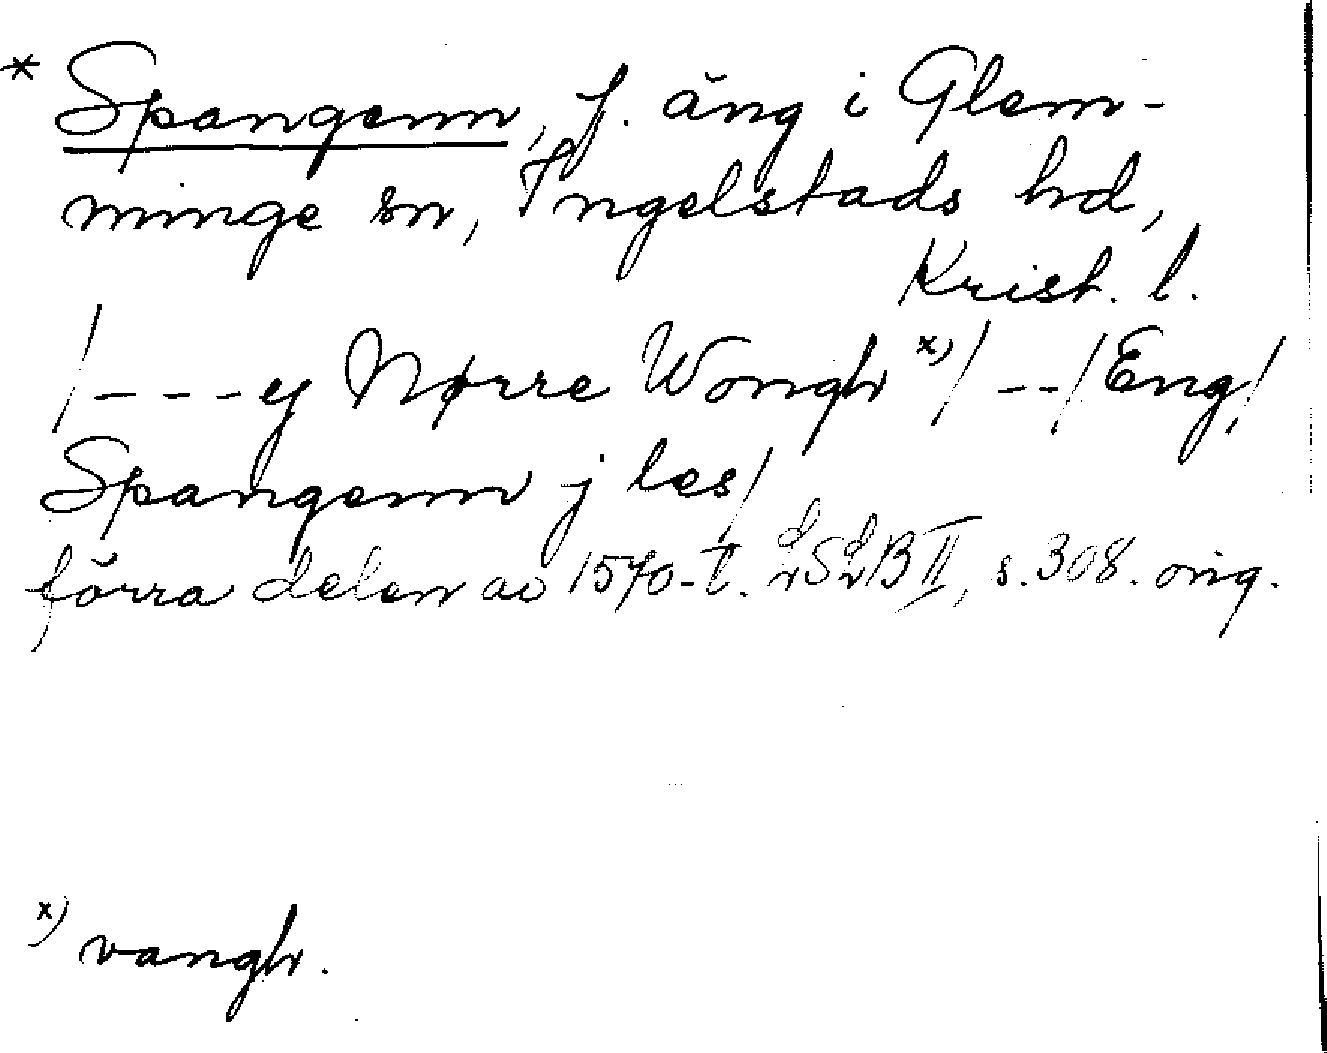 * Spangenn, f. äng i Glem-
minge sn, Ingelstads hd,
Krist. l.
/---ej Nørre Wongh x)/ --/Eng/
Spangenn j les/
förra delen av 1570-t. LSLB II, s. 308. orig.
x) vangh.